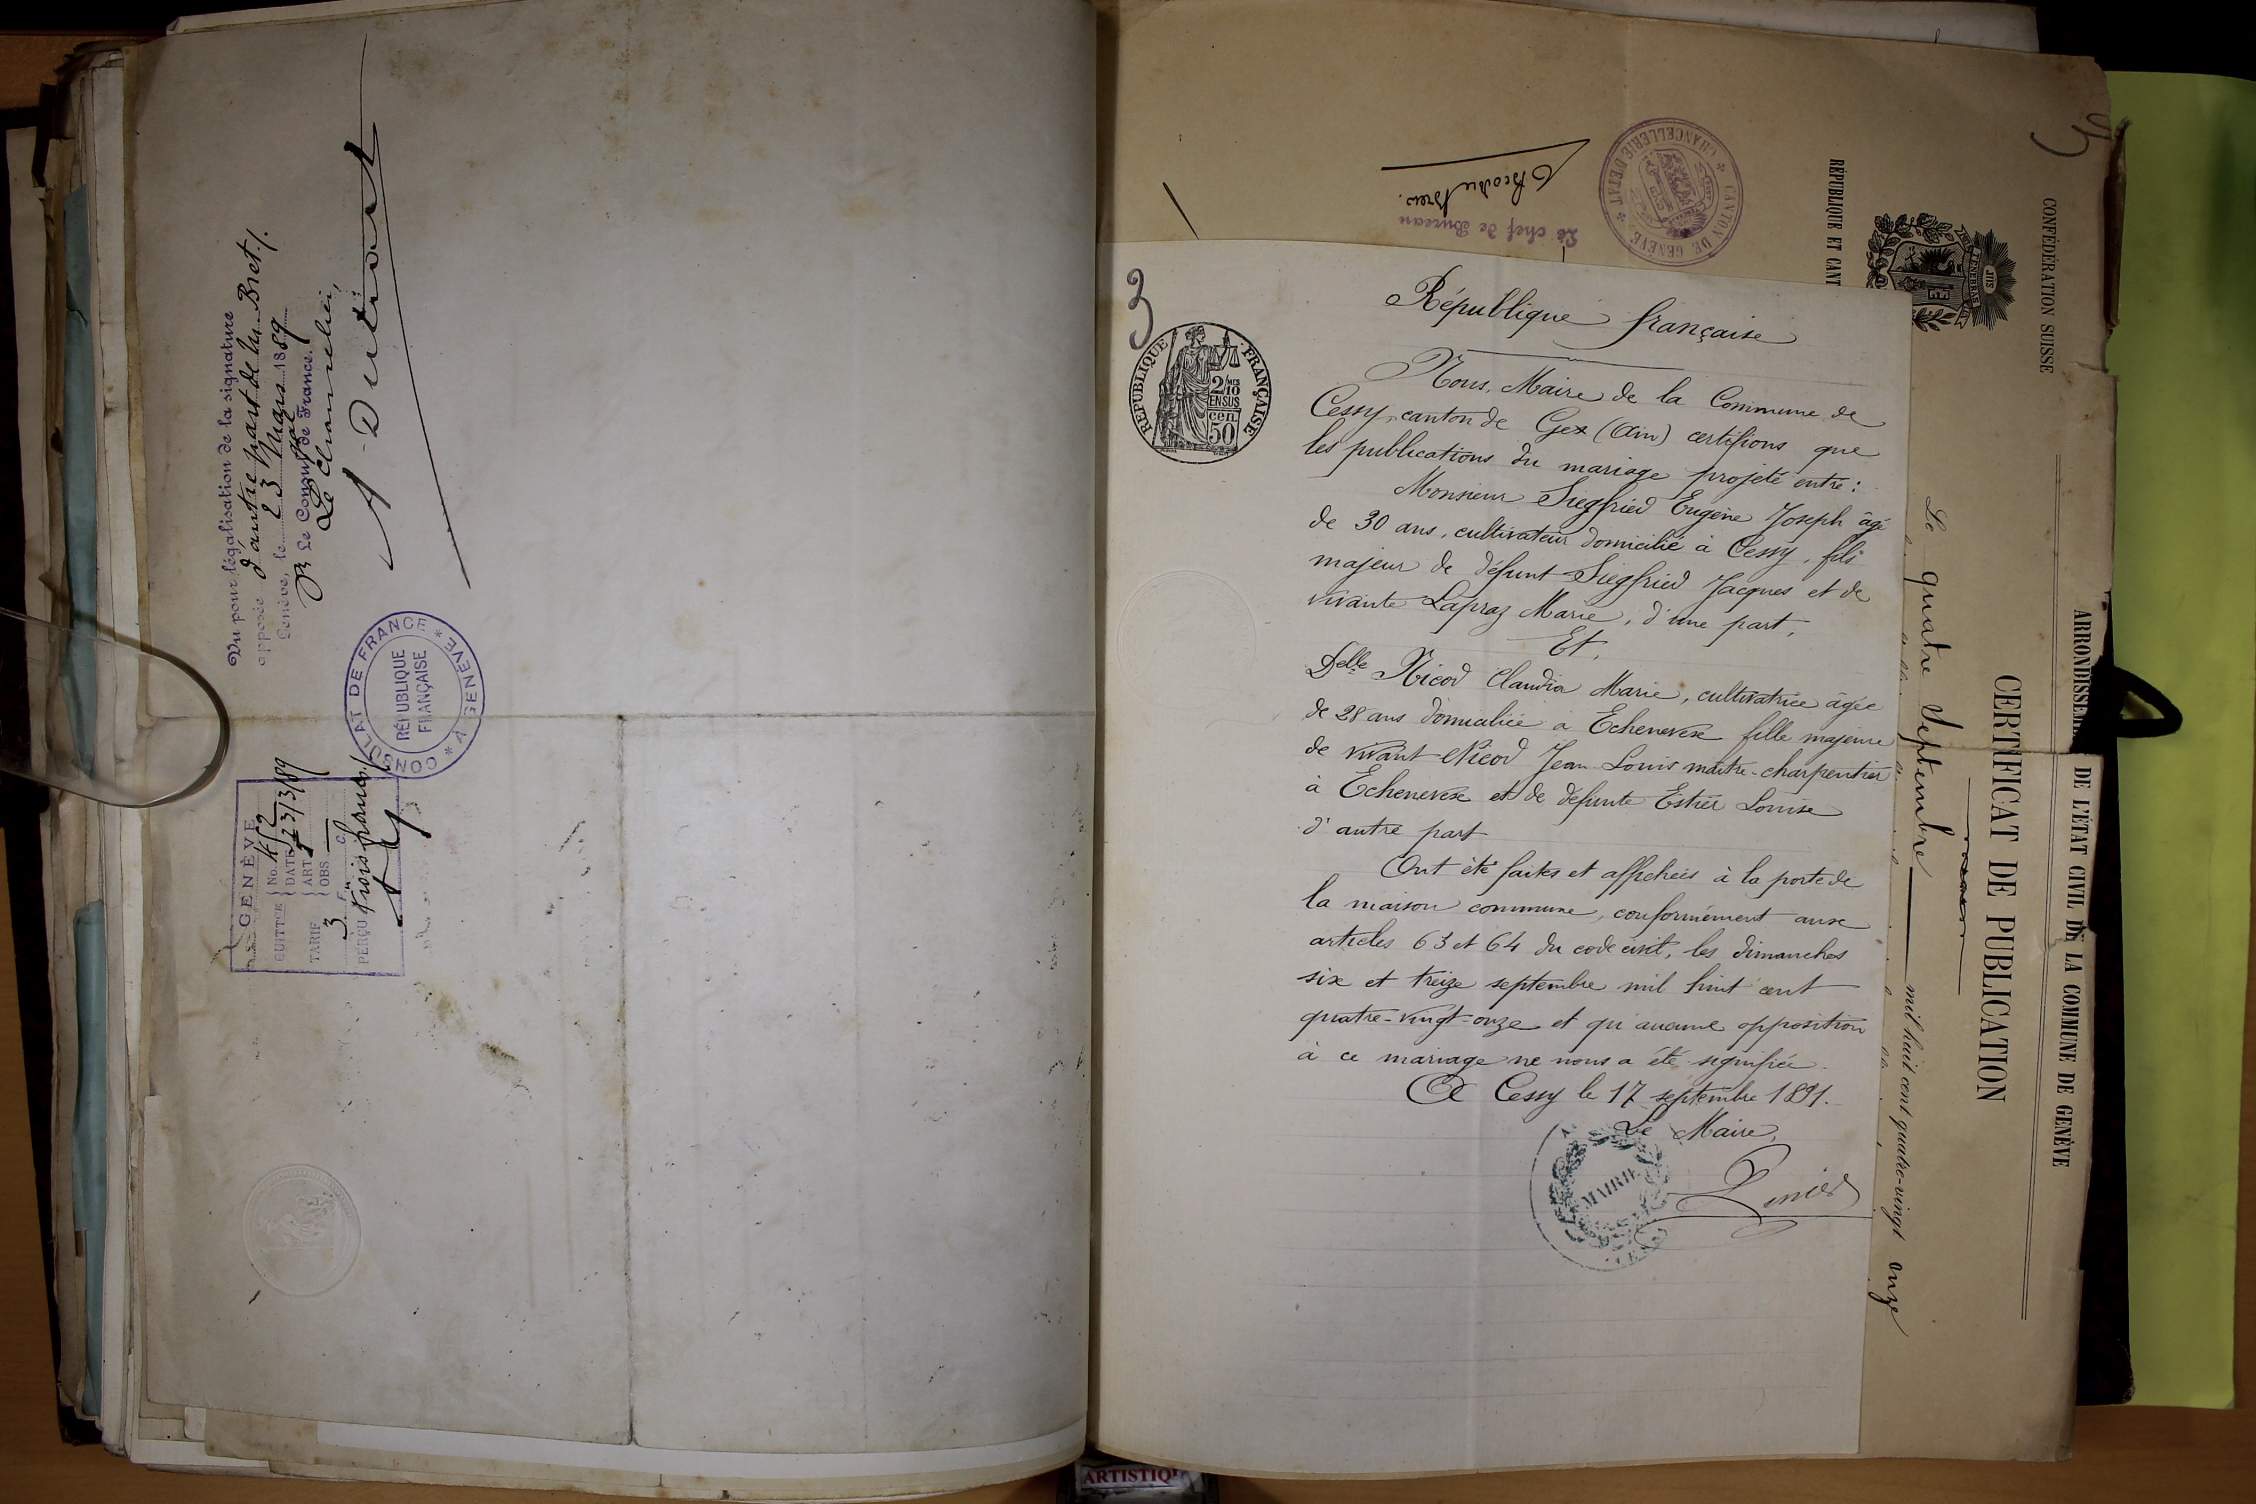 Vu pour légalisation de la signature
apposée d'autre part de Mr Bret./.
Genève, le 23 Mars 1889
Le Consul de France.
Le Chancelier,
A. Dutiort
CONSULAT DE FRANCE * GENÈVE *
RÉPUBLIQUE
FRANÇAISE
GENÈVE
QUITTCE No. 452
DATE 23/3/89
TARIF ART
OBS
F. C.
3
PERÇU trois francs/
3
RÉPUBLIQUE FRANÇAISE
2/10 MES
EN SUS
50 cen.
République française
Nous, Maire de la Commune de
Cessy, canton de Gex (Ain) certifions que
les publications du mariage projeté entre:
Monsieur Siegfried Eugène Joseph âgé
de 30 ans, cultivateur domicilié à Cessy, fils
majeur de défunt Siegfried Jacques et de
vivante Lapraz Marie, d'une part,
Et,
Delle Nicod Claudia Marie, cultivatrice âgée
de 28 ans domiciliée à Echenevex fille majeure
de vivant Nicod Jean Louis maître-charpentier
à Echenevex et de défunte Estier Louise
d'autre part
Ont été faites et affichées à la porte de
la maison commune, conformément aux
articles 63 et 64 du code civil, les dimanches
six et treize septembre mil huit cent
quatre-vingt-onze et qu'aucune opposition
à ce mariage ne nous a été signifiée.
A Cessy le 17 septembre 1891.
Le Maire,
MAIRIE
Le chef de Bureau
CANTON DE GENÈVE * CHANCELLERIE D'ETAT *
CONFÉDÉRATION SUISSE
RÉPUBLIQUE ET CANT
ARRONDISSEM DE L'ÉTAT CIVIL DE LA COMMUNE DE GENÈVE
CERTIFICAT DE PUBLICATION
Le quatre Septembre mil huit cent quatre-vingt onze
ARTISTIQ